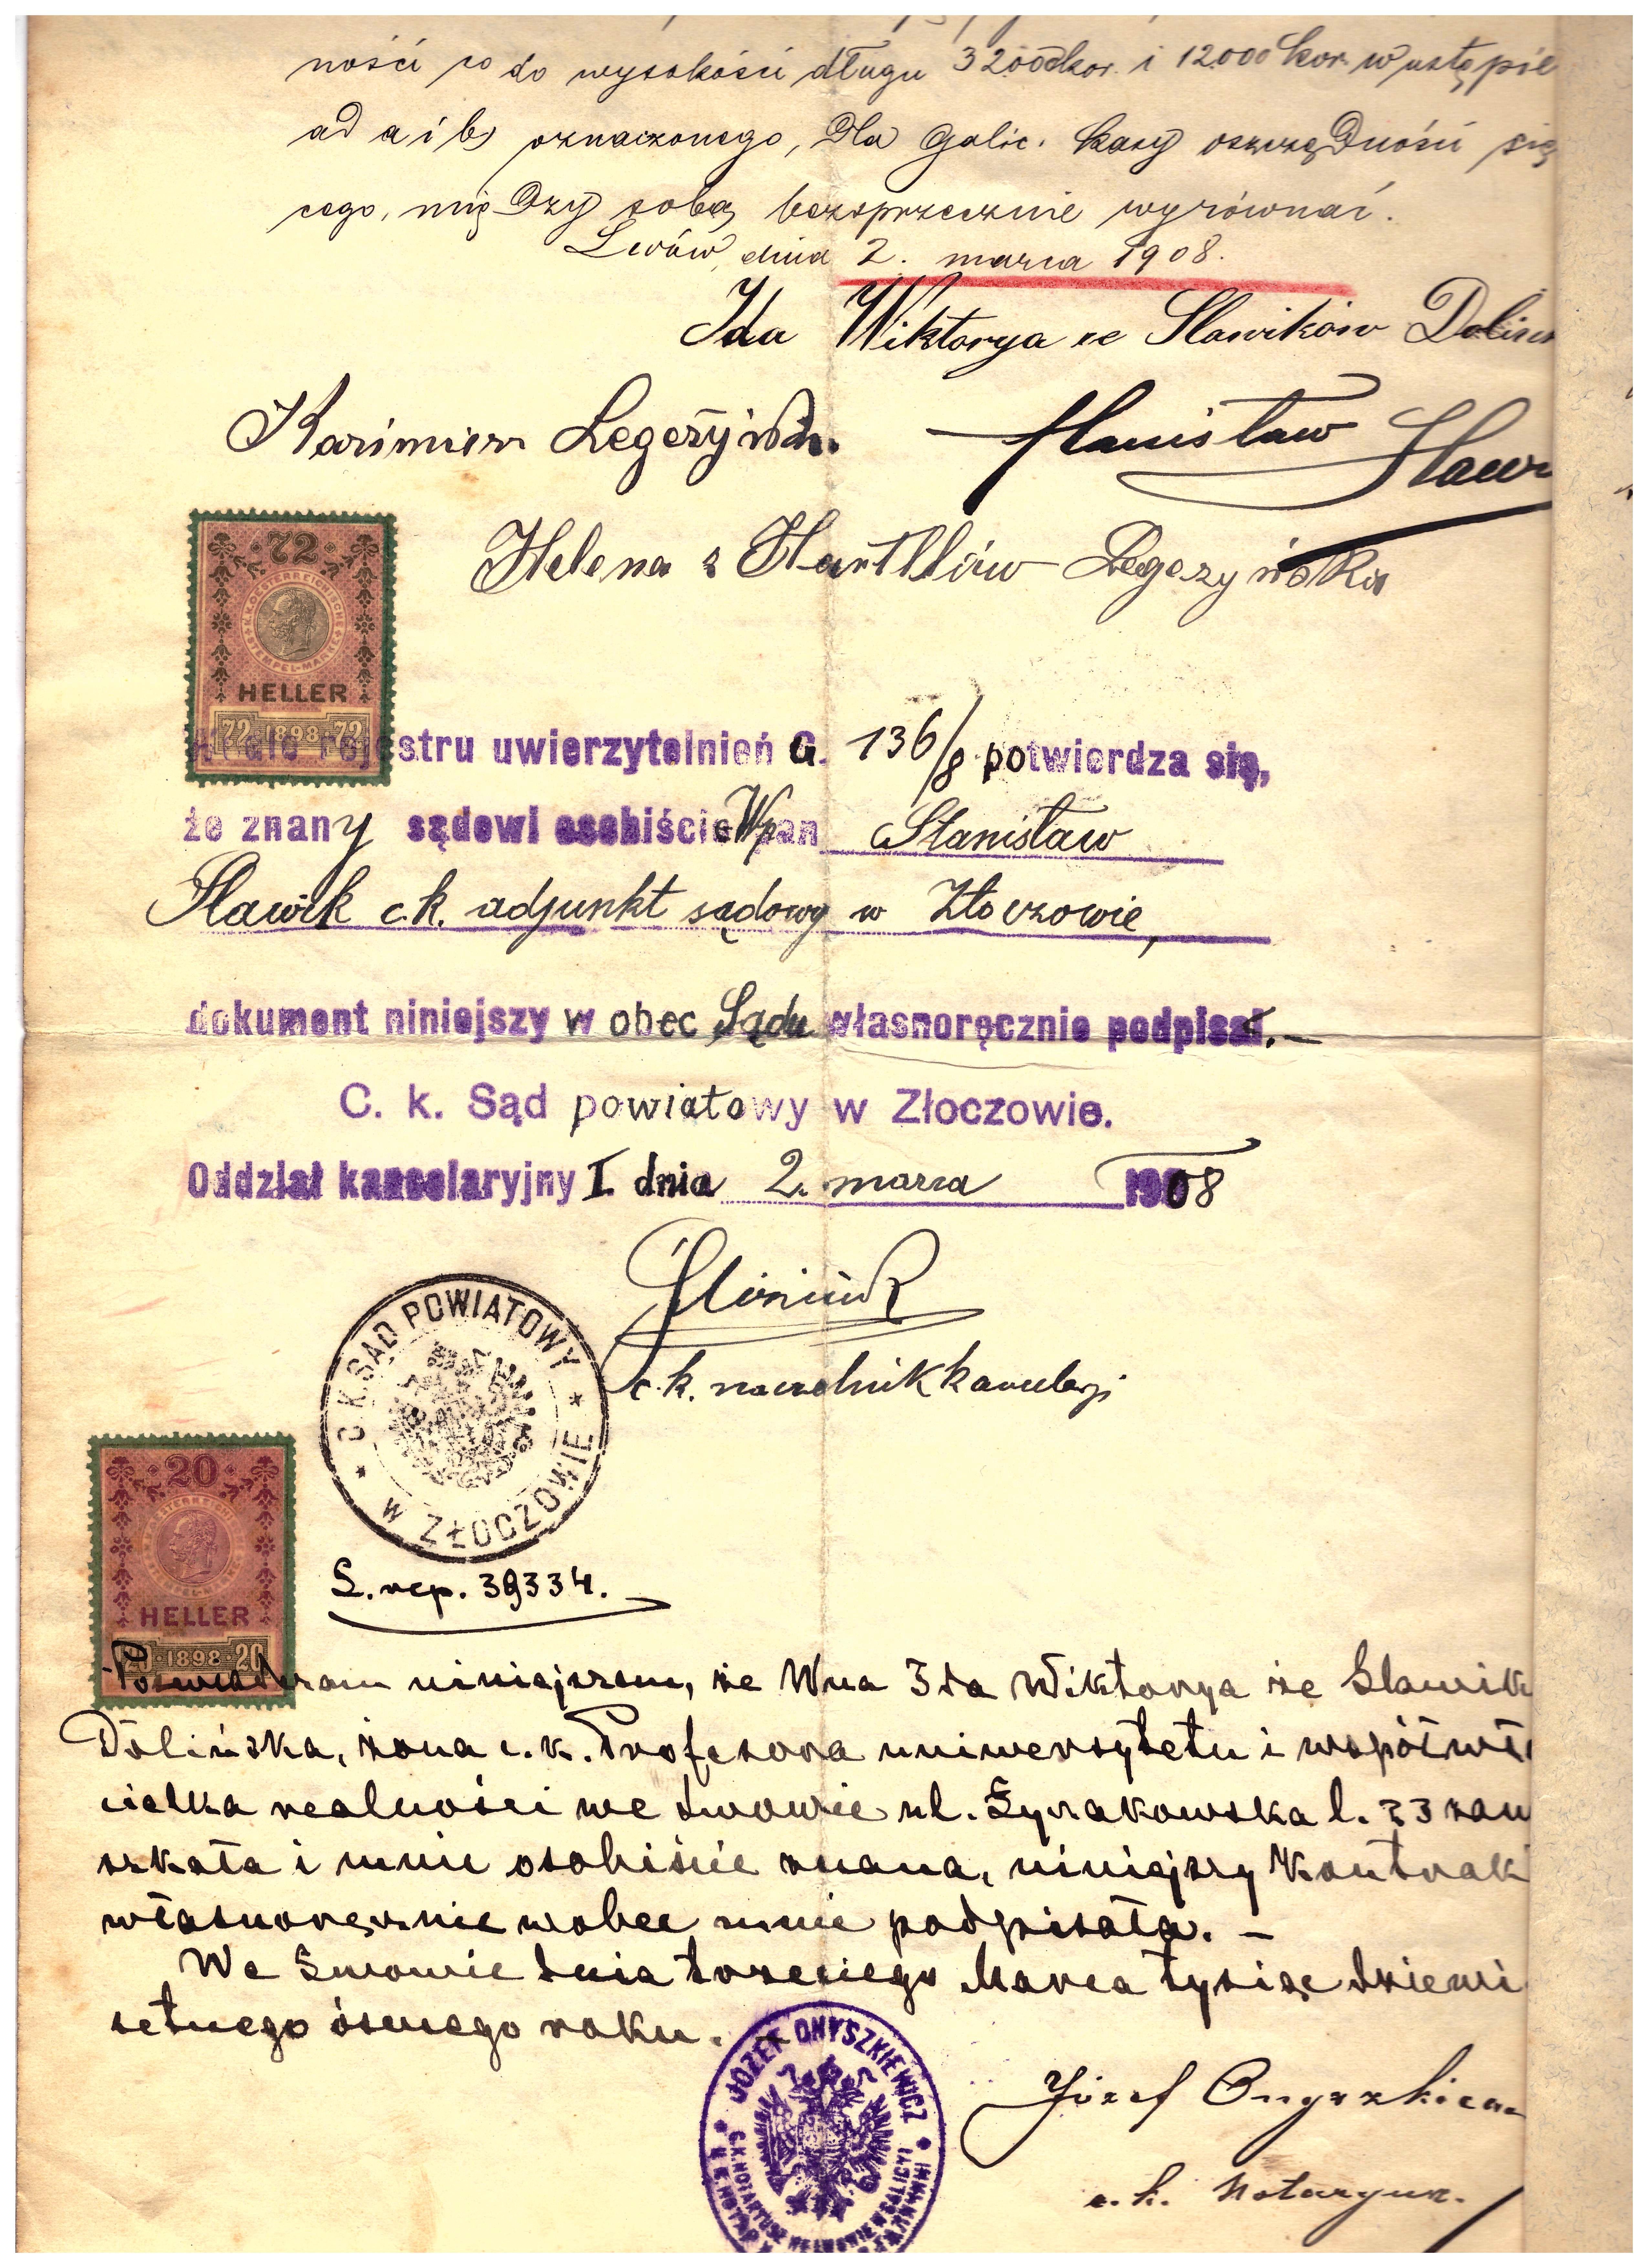 ności co do wysokości długu 32000 kor. i 12.000 kor. w ustępie
ad a i b) oznaczonego, dla galic. kasy oszczędności
cego, między sobą bezsprzecznie wyrównać.
Lwów, dnia 2. marca 1908.
Ida Wiktorya ze Slawików Dolińs
Kazimierz Legeżyński.
Stanisław Sławi
Helena z Hartllów Legeżyńska
72
K.K. OESTERREICHISCHE STEMPEL-MARKE
HELLER
72 1898 72
Wedle rejestru uwierzytelnień G. 136/8 potwierdza się,
że znany sądowi osobiście Wpan Stanisław
Sławik c.k. adjunkt sądowy w Złoczowie,
dokument niniejszy w obec Sądu własnoręcznie podpisał.—
C. k. Sąd powiatowy w Złoczowie.
Oddział kancelaryjny I. dnia 2. marca 1908
c.k. naczelnik kancelaryi
C.K. SĄD POWIATOWY
W ZŁOCZOWIE
20
HELLER
20 1898 20
L. rep. 39334.
Poświadczam niniejszem, że Wna Ida Wiktorya ze Sławik
Dolińska, żona c. k. Profesora uniwersytetu i współwł
cielka realności we Lwowie ul. Łyczakowska l. 23 zam
szkała i mnie osobiście znana, niniejszy Kontrak
własnoręcznie wobec mnie podpisała. —
We Lwowie dnia trzeciego Marca tysiąc dziewi
setnego ósmego roku. —
JÓZEF ONYSZKIEWICZ
C.K. NOTARYUSZ WE LWOWIE W GALICYI
Józef Onyszkiew
c. k. Notaryusz.